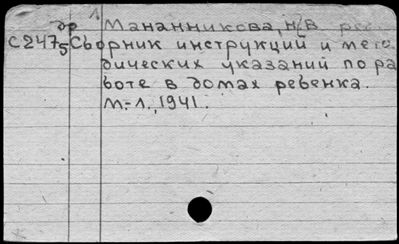 др 1.
Мананникова, Н.В.
С2475 Сборник инструкций и мето-
дических указаний по ра
боте в домах ребенка.
М.-Л., 1941.